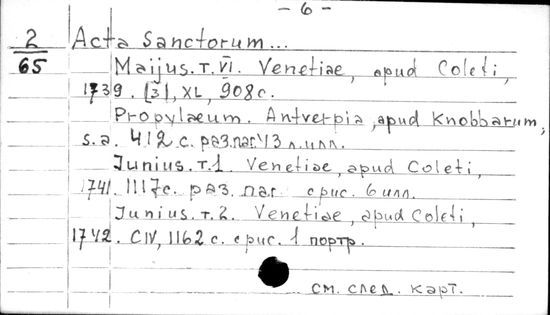 - 6 -
2/65 Acta Sanctorum...
Maijus. т. VI. Venetiae, apud Coleti,
1739. [3], XL, 908 с.
Propylaeum. Antverpia, apud Knobbarum,
s.a. 412 с. раз.паг. 13 л.илл.
Junius. т. 1. Venetiae, apud Coleti,
1741. 1117с. раз. паг. с рис. 6 илл.
Junius. т. 2. Venetiae, apud Coleti,
1742. CIV, 1162 с. с рис. 1 портр.
см. след. карт.